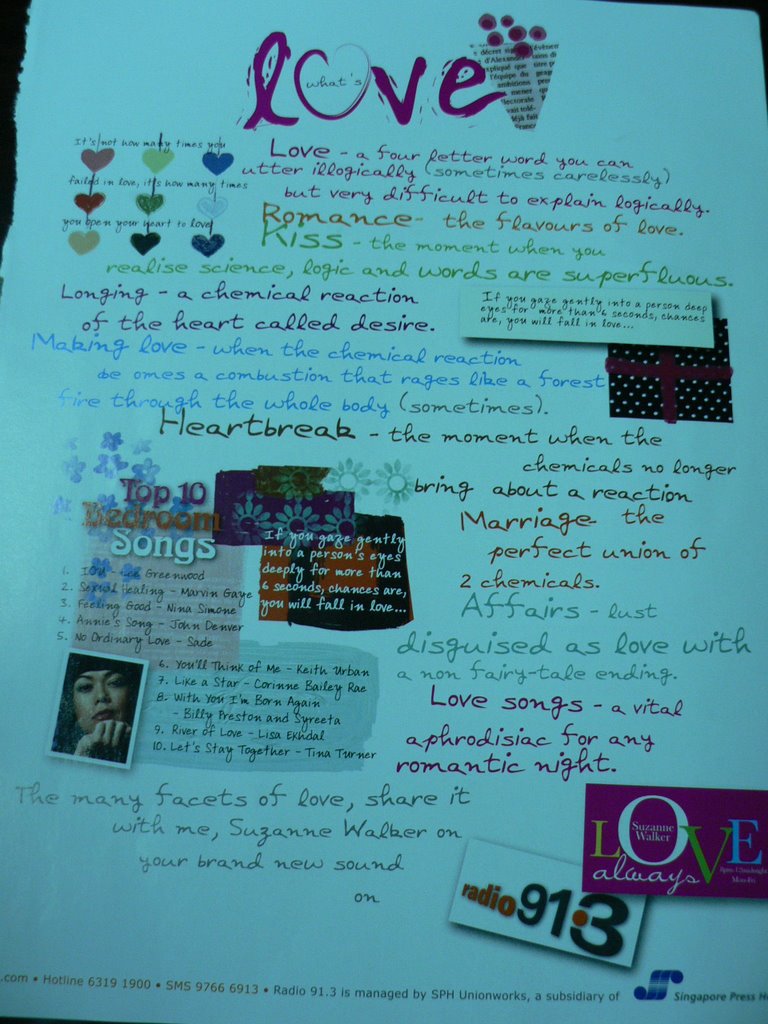 what's
love
It's not how many times you
failed in love, it's how many times
you open your heart to love
Love - a four letter word you can
utter illogically (sometimes carelessly)
but very difficult to explain logically.
Romance - the flavours of love.
Kiss - the moment when you
realise science, logic and words are superfluous.
Longing - a chemical reaction
of the heart called desire.
If you gaze gently into a person deep
eyes for more than 6 seconds, chances
are, you will fall in love...
Making love - when the chemical reaction
be omes a combustion that rages like a forest
fire through the whole body (sometimes).
Heartbreak - the moment when the
chemicals no longer
bring about a reaction
Marriage - the
perfect union of
2 chemicals.
Affairs - lust
disguised as love with
a non fairy-tale ending.
Love songs - a vital
aphrodisiac for any
romantic night.
Top 10
Bedroom
Songs
1. IOU - Lee Greenwood
2. Sexual Healing - Marvin Gaye
3. Feeling Good - Nina Simone
4. Annie's Song - John Denver
5. No Ordinary Love - Sade
6. You'll Think of Me - Keith Urban
7. Like a Star - Corinne Bailey Rae
8. With You I'm Born Again
- Billy Preston and Syreeta
9. River of Love - Lisa Ekhdal
10. Let's Stay Together - Tina Turner
If you gaze gently
into a person's eyes
deeply for more than
6 seconds, chances are,
you will fall in love...
The many facets of love, share it
with me, Suzanne Walker on
your brand new sound
on
LOVE
Suzanne
Walker
always
8pm-12midnight
Mon-Fri
radio 91.3
.com • Hotline 6319 1900 • SMS 9766 6913 • Radio 91.3 is managed by SPH Unionworks, a subsidiary of Singapore Press